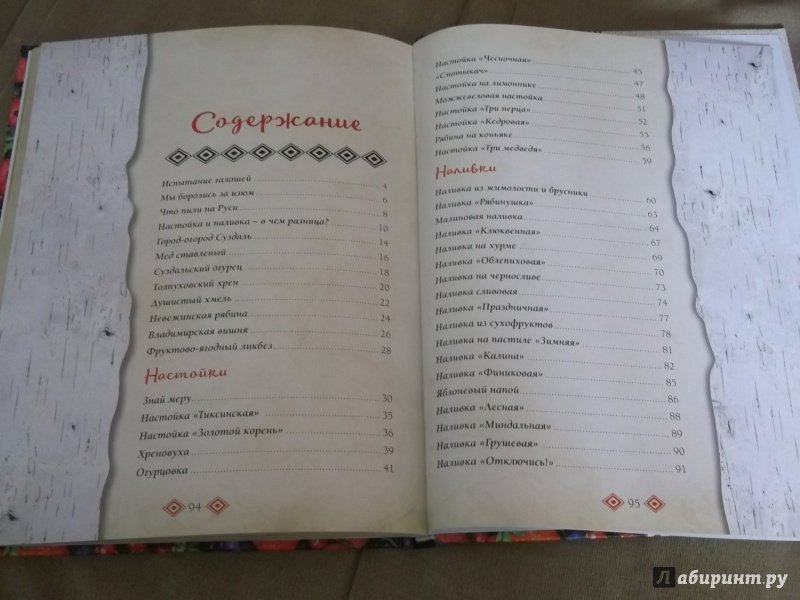 Содержание
Испытание галошей 4
Мы боролись за изюм 6
Что пили на Руси 8
Настойка и наливка – в чем разница? 10
Город-огород Суздаль 14
Мед ставленый 16
Суздальский огурец 18
Толпуховский хрен 20
Душистый хмель 22
Невежинская рябина 24
Владимирская вишня 26
Фруктово-ягодный ликбез 28
Настойки
Знай меру 30
Настойка «Тиксинская» 35
Настойка «Золотой корень» 36
Хреновуха 39
Огурцовка 41
94
Настойка «Чесночная» 45
«Спотыкач» 47
Настойка на лимоннике 48
Можжевеловая настойка 51
Настойка «Три перца» 52
Настойка «Кедровая» 55
Рябина на коньяке 56
Настойка «Три медведя» 59
Наливки
Наливка из жимолости и брусники 60
Наливка «Рябинушка» 63
Малиновая наливка 64
Наливка «Клюквенная» 67
Наливка на хурме 69
Наливка «Облепиховая» 70
Наливка на черносливе 73
Наливка сливовая 74
Наливка «Праздничная» 77
Наливка из сухофруктов 78
Наливка на пастиле «Зимняя» 81
Наливка «Калина» 82
Наливка «Финиковая» 85
Яблоневый напой 86
Наливка «Лесная» 88
Наливка «Миндальная» 89
Наливка «Грушевая» 90
Наливка «Отключись!» 91
95
Лабиринт.ру